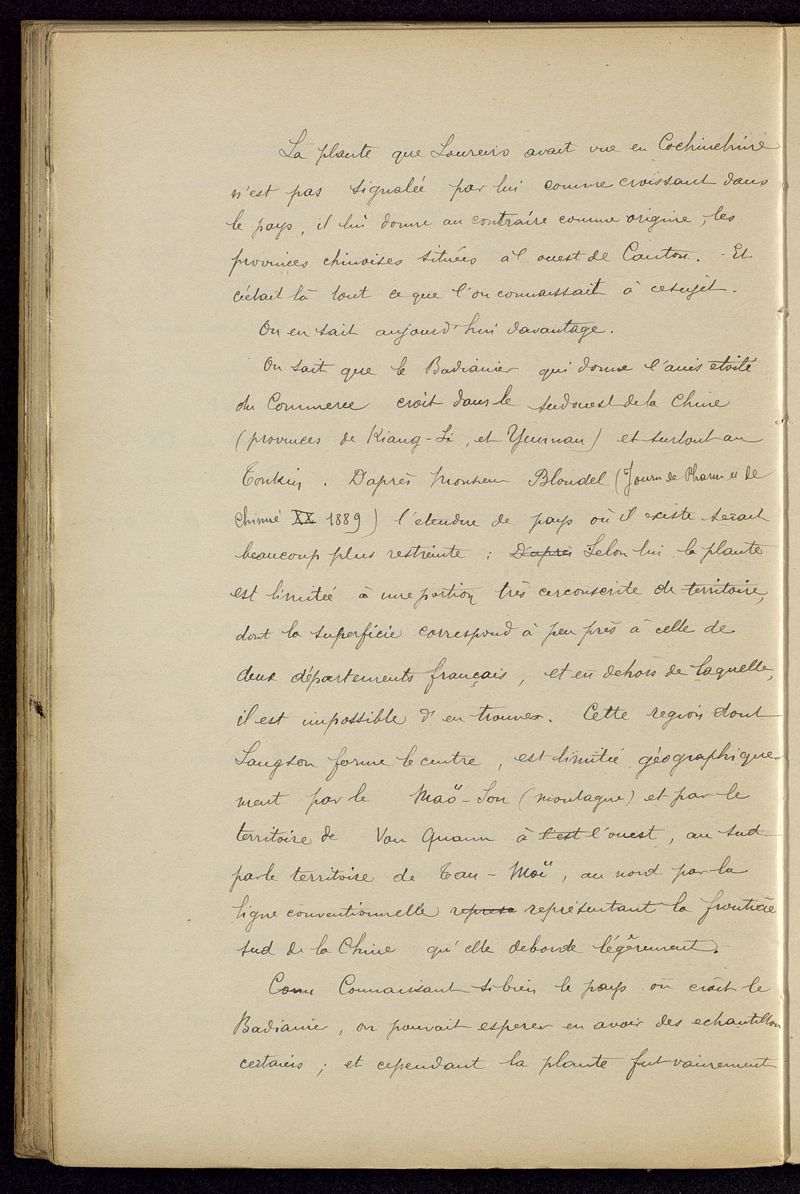 La plante que Loureiro avait vue en Cochinchine
n'est pas signalée par lui comme croissant dans
le pays, il lui donne au contraire comme origine, les
provinces chinoises situées à l'ouest de Canton. - Et
c'était là tout ce que l'on connaissait à ce sujet.
On en sait aujourd'hui davantage.
On sait que le Badianier qui donne l'anis etoilé
du Commerce croit dans le sud ouest de la Chine
(provinces de Kiang-Si, et Yunnan) et surtout au
Tonkin. D'après Monsieur Blondel (Journ de Pharm et de
Chimie XX 1889) l'etendue de pays où il existe serait
beaucoup plus restreinte : D'après Selon lui la plante
est limitée à une portion très circonscrite de territoire,
dont la superficie correspond à peu près à celle de
deux départements français, et en dehors de laquelle,
il est impossible d'en trouver. Cette region dont
Langson forme le centre, est limitée géographique-
ment par le Maö-Son (montagne) et par le
territoire de Van Quann à l'est l'ouest, au sud
par le territoire de Tan-Moï, au nord par la
ligne conventionnelle represa représentant la frontière
sud de la Chine qu'elle deborde légèrement.
Conn Connaissant si bien le pays où croît le
Badianier, on pouvait esperer en avoir des echantillons
certains ; et cependant la plante fut vainement